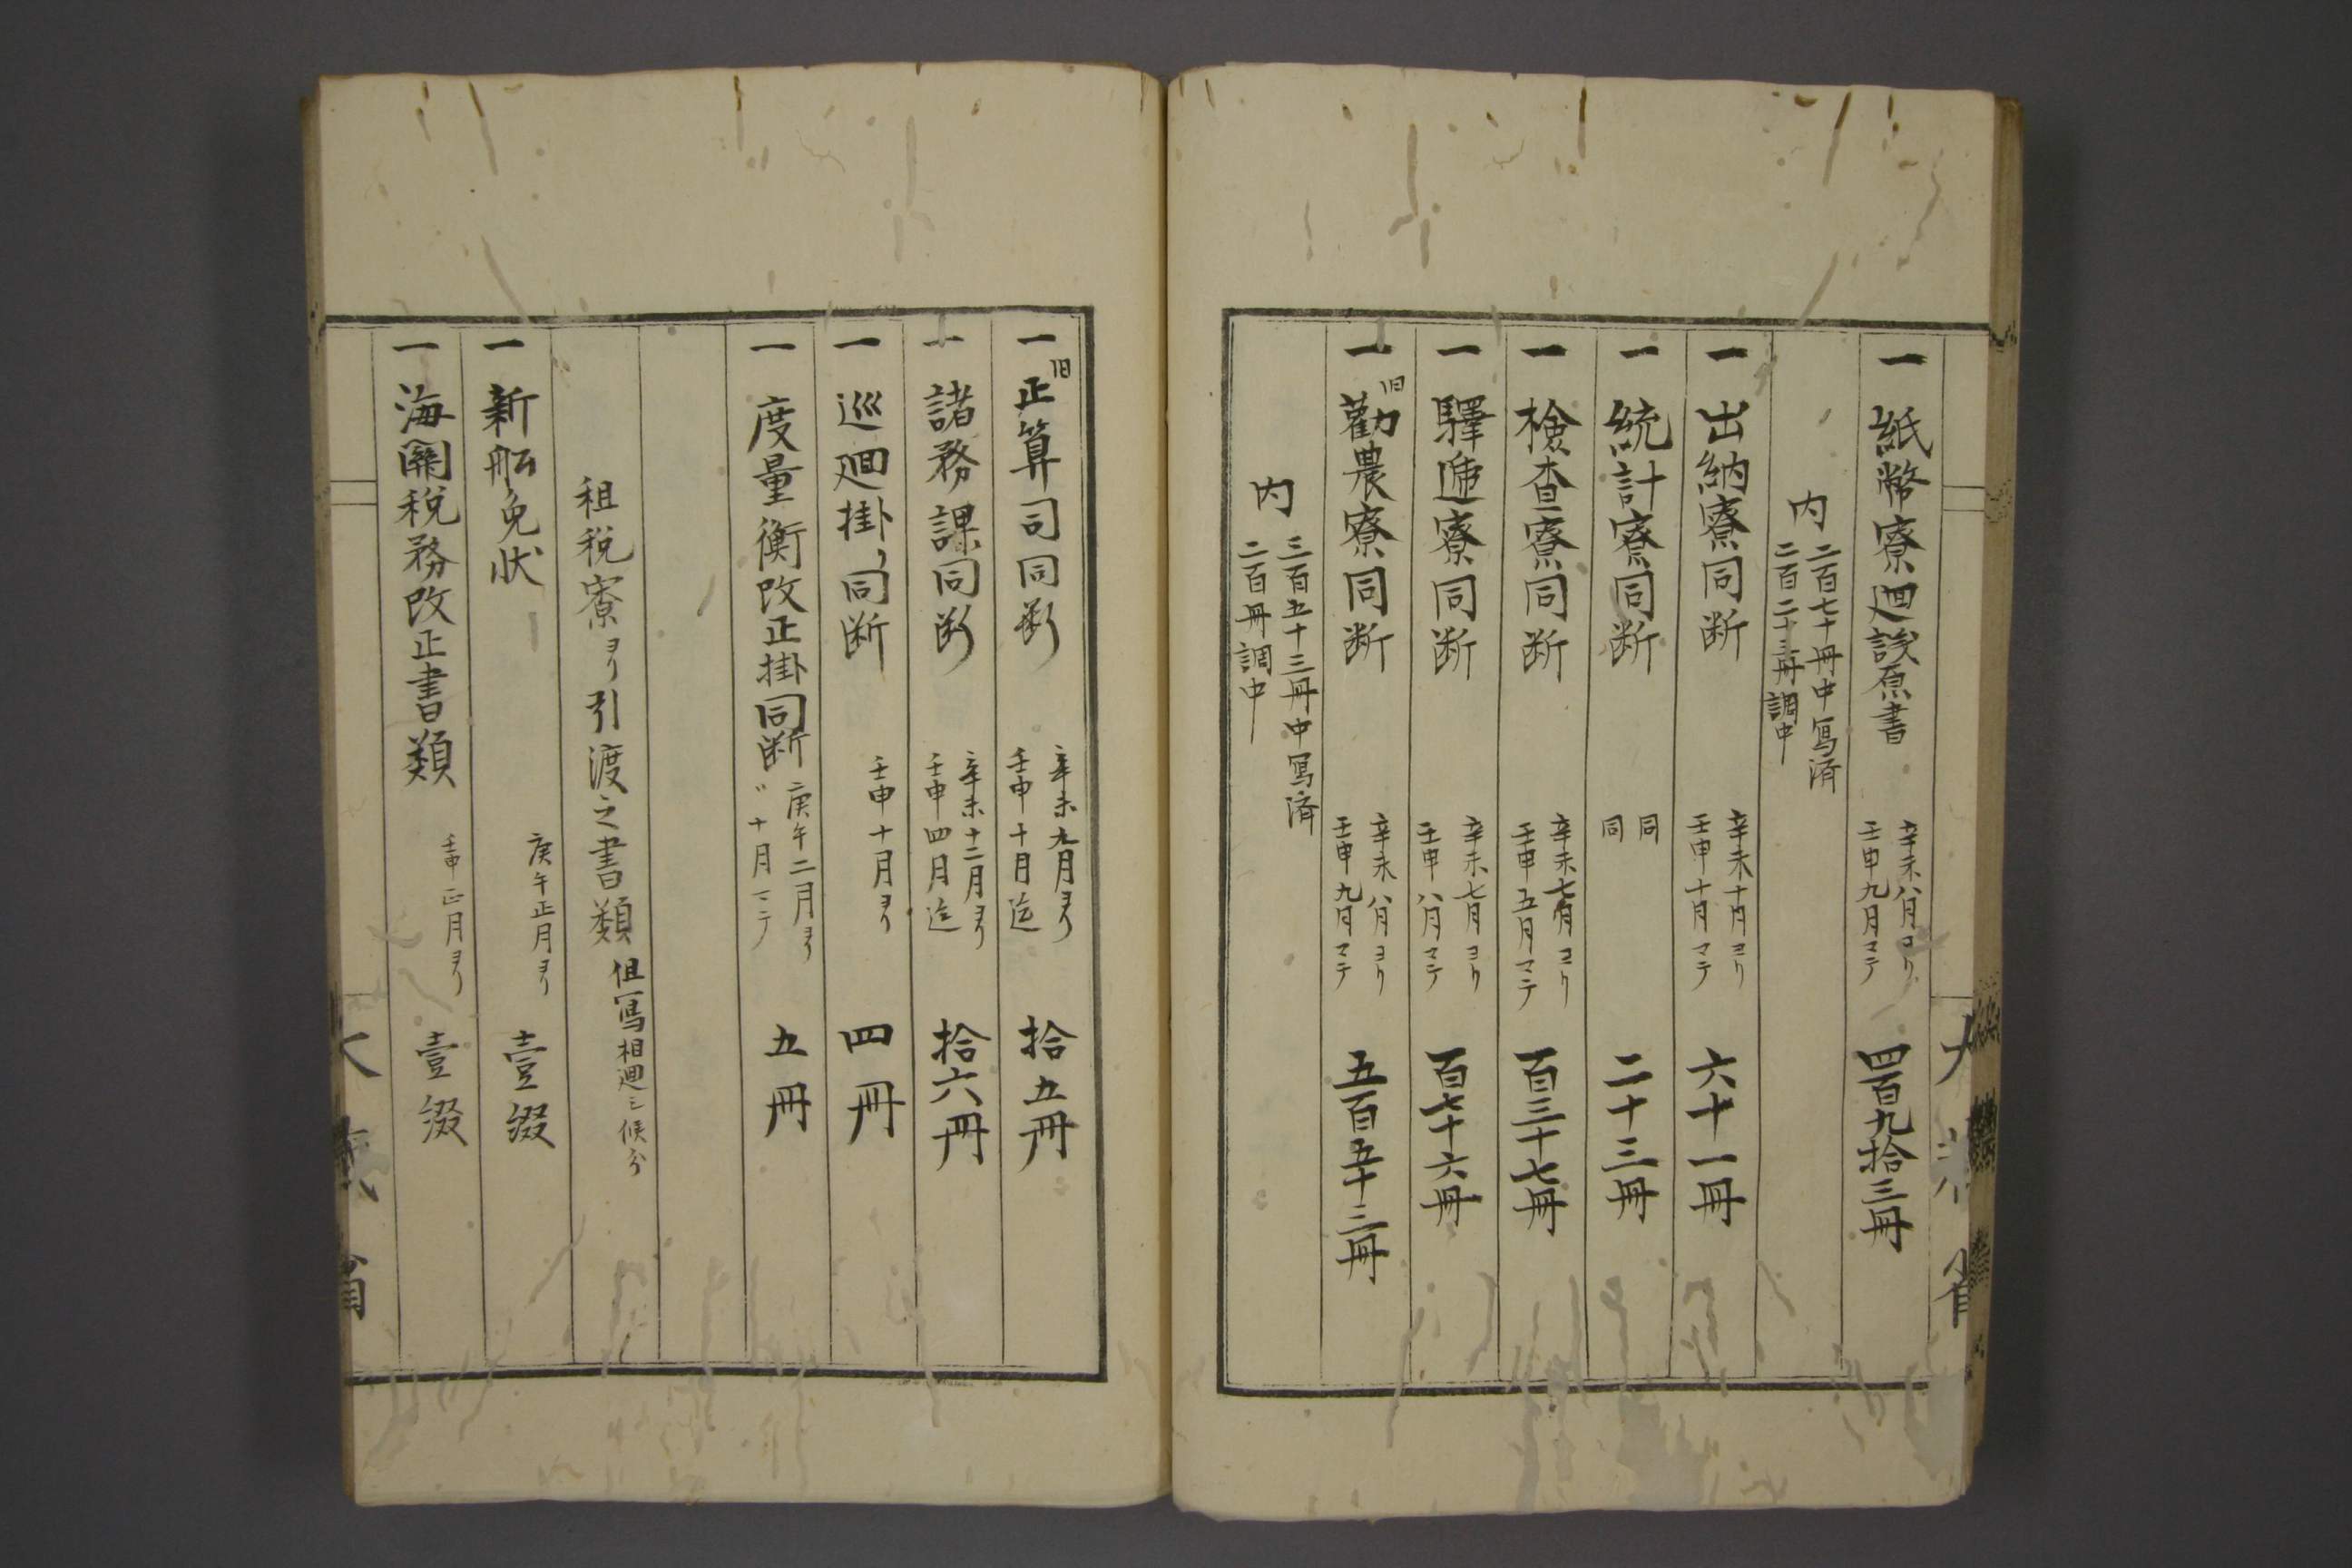 一 紙幣寮廻議原書 辛未八月ヨリ 壬申九月マテ 四百九拾三冊
内 二百七十冊中写済 二百二十三冊調中
一 出納寮同断 辛未十月ヨリ 壬申十月マテ 六十一冊
一 統計寮同断 同 同 二十三冊
一 検査寮同断 辛未七月ヨリ 壬申五月マテ 百三十七冊
一 驛逓寮同断 辛未七月ヨリ 壬申八月マテ 百七十六冊
一 旧勸農寮同断 辛未八月ヨリ 壬申九月マテ 五百五十三冊
内 三百五十三冊中写済 二百冊調中
一 旧正算司同断 辛未九月ヨリ 壬申十月迄 拾五冊
一 諸務課同断 辛未十二月ヨリ 壬申四月迄 拾六冊
一 巡廻掛同断 壬申十月ヨリ 四冊
一 度量衡改正掛同断 庚午二月ヨリ 〃十月マテ 五冊
租税寮ヨリ引渡之書類 但写相廻シ候分
一 新船免状 庚午正月ヨリ 壹綴
一 海關税務改正書類 壬申正月ヨリ 壹綴
大蔵省